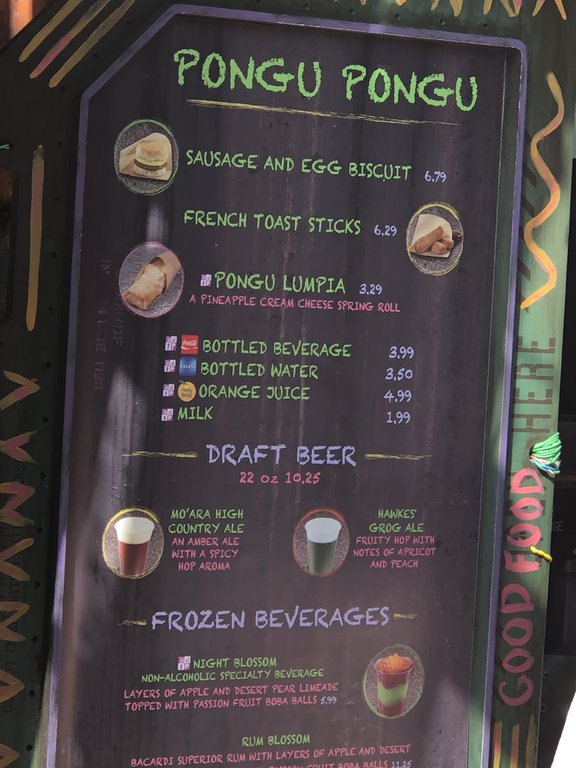 PONGU PONGU
SAUSAGE AND EGG BISCUIT 6.79
FRENCH TOAST STICKS 6.29
PONGU LUMPIA 3.29
A PINEAPPLE CREAM CHEESE SPRING ROLL
Coca-Cola BOTTLED BEVERAGE 3.99
BOTTLED WATER 3.50
ORANGE JUICE 4.99
MILK 1.99
DRAFT BEER
22 OZ 10.25
MO'ARA HIGH
COUNTRY ALE
AN AMBER ALE
WITH A SPICY
HOP AROMA
HAWKES'
GROG ALE
FRUITY HOP WITH
NOTES OF APRICOT
AND PEACH
FROZEN BEVERAGES
NIGHT BLOSSOM
NON-ALCOHOLIC SPECIALTY BEVERAGE
LAYERS OF APPLE AND DESERT PEAR LIMEADE
TOPPED WITH PASSION FRUIT BOBA BALLS 5.99
RUM BLOSSOM
BACARDI SUPERIOR RUM WITH LAYERS OF APPLE AND DESERT
FRUIT BOBA BALLS 11.25
GOOD FOOD HERE